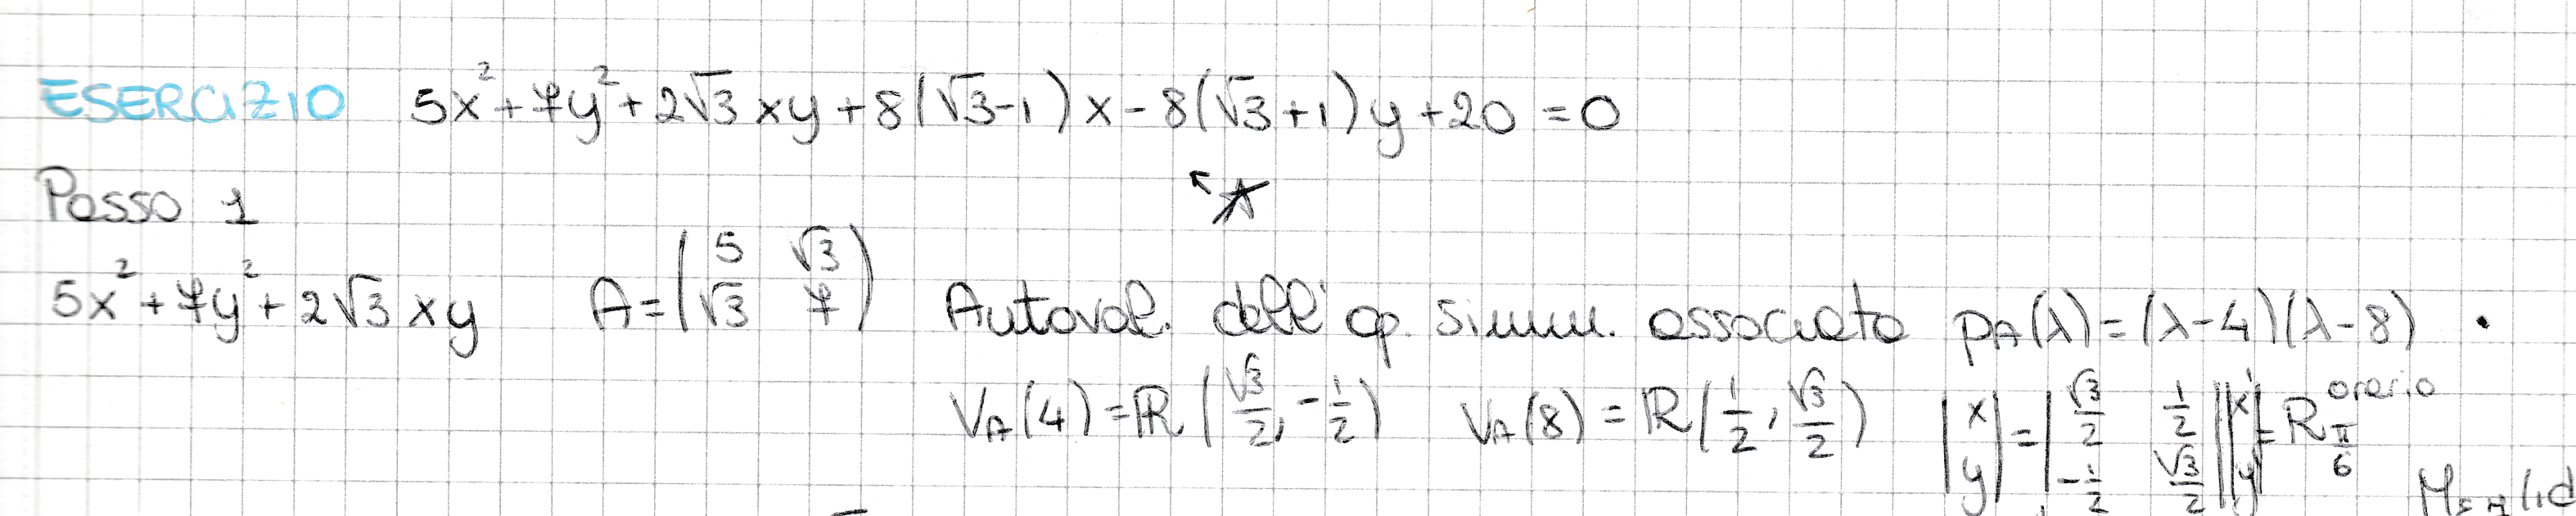 ESERCIZIO 5x² + 7y² + 2√3 xy + 8(√3-1)x - 8(√3+1)y + 20 = 0
Passo 1
5x² + 7y² + 2√3 xy A = (5 √3 / √3 7) Autoval. dell' op. simm. associato pA(λ) = (λ-4)(λ-8) .
VA(4) = ℝ(√3/2, -1/2) VA(8) = ℝ(1/2, √3/2) |x / y| = |√3/2 1/2 / -1/2 √3/2| |x' / y'| = R π/6 orario